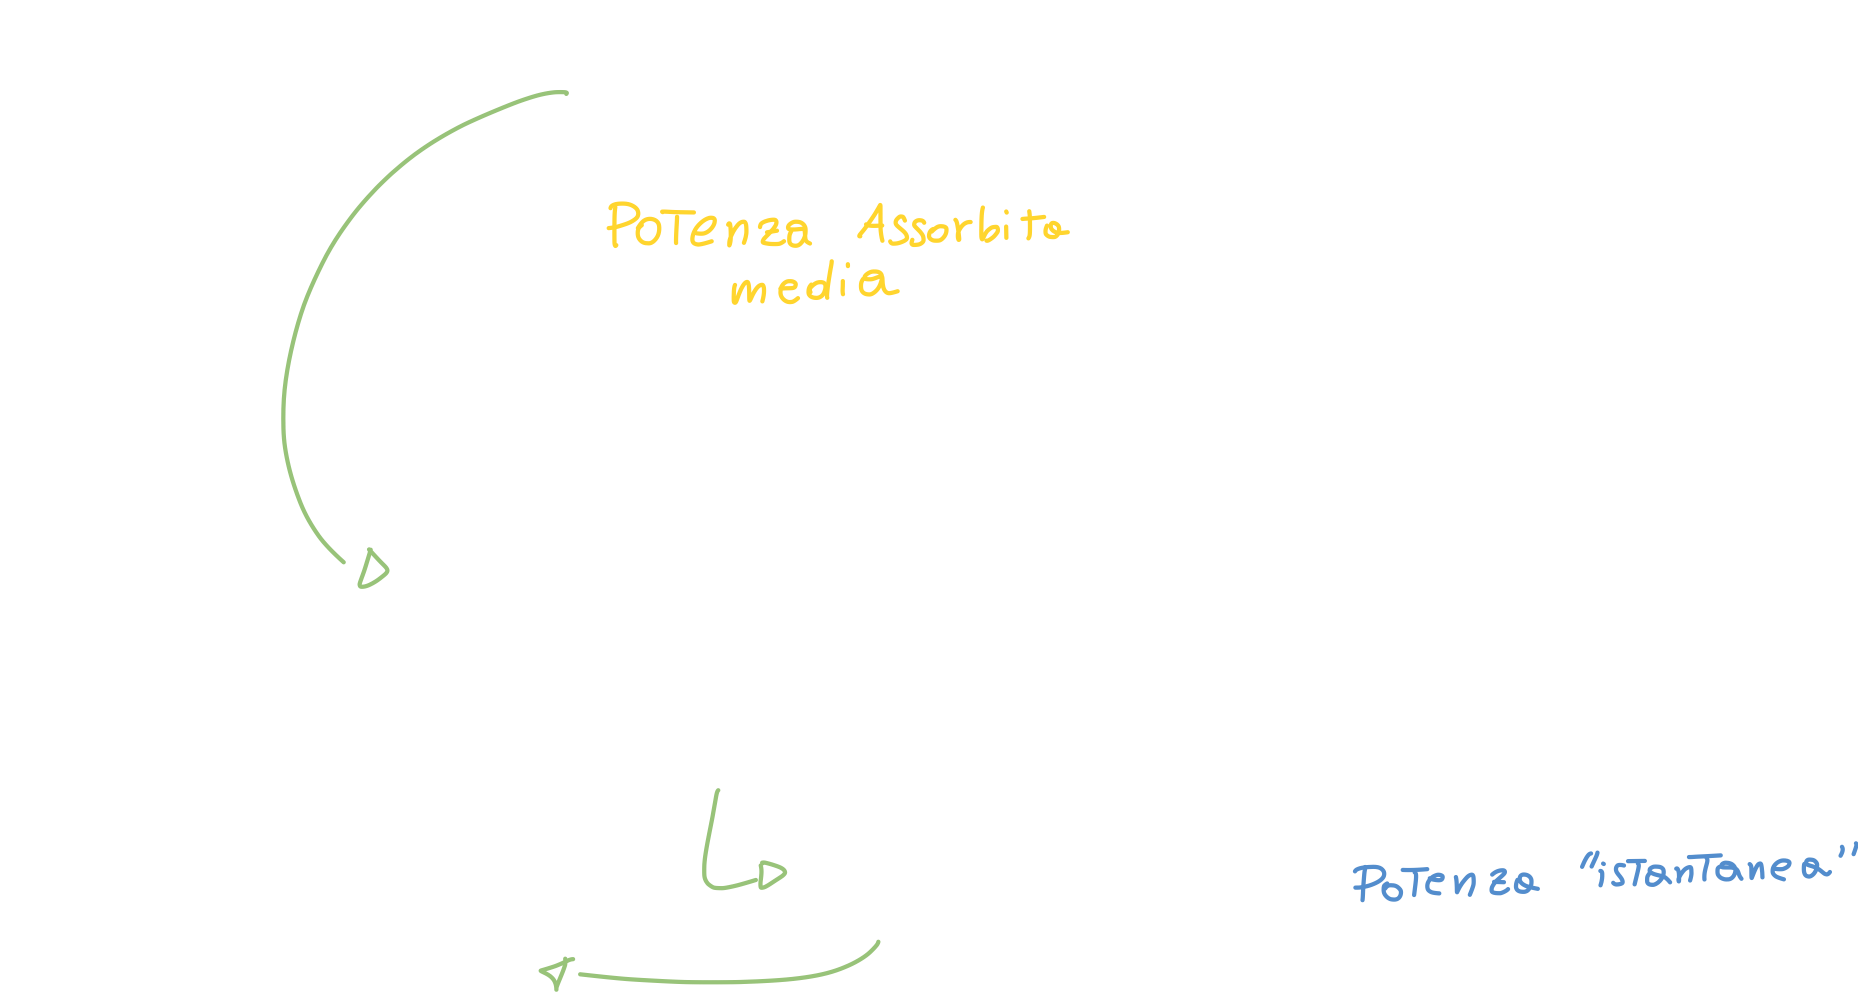 Potenza Assorbita
media
Potenza "istantanea"